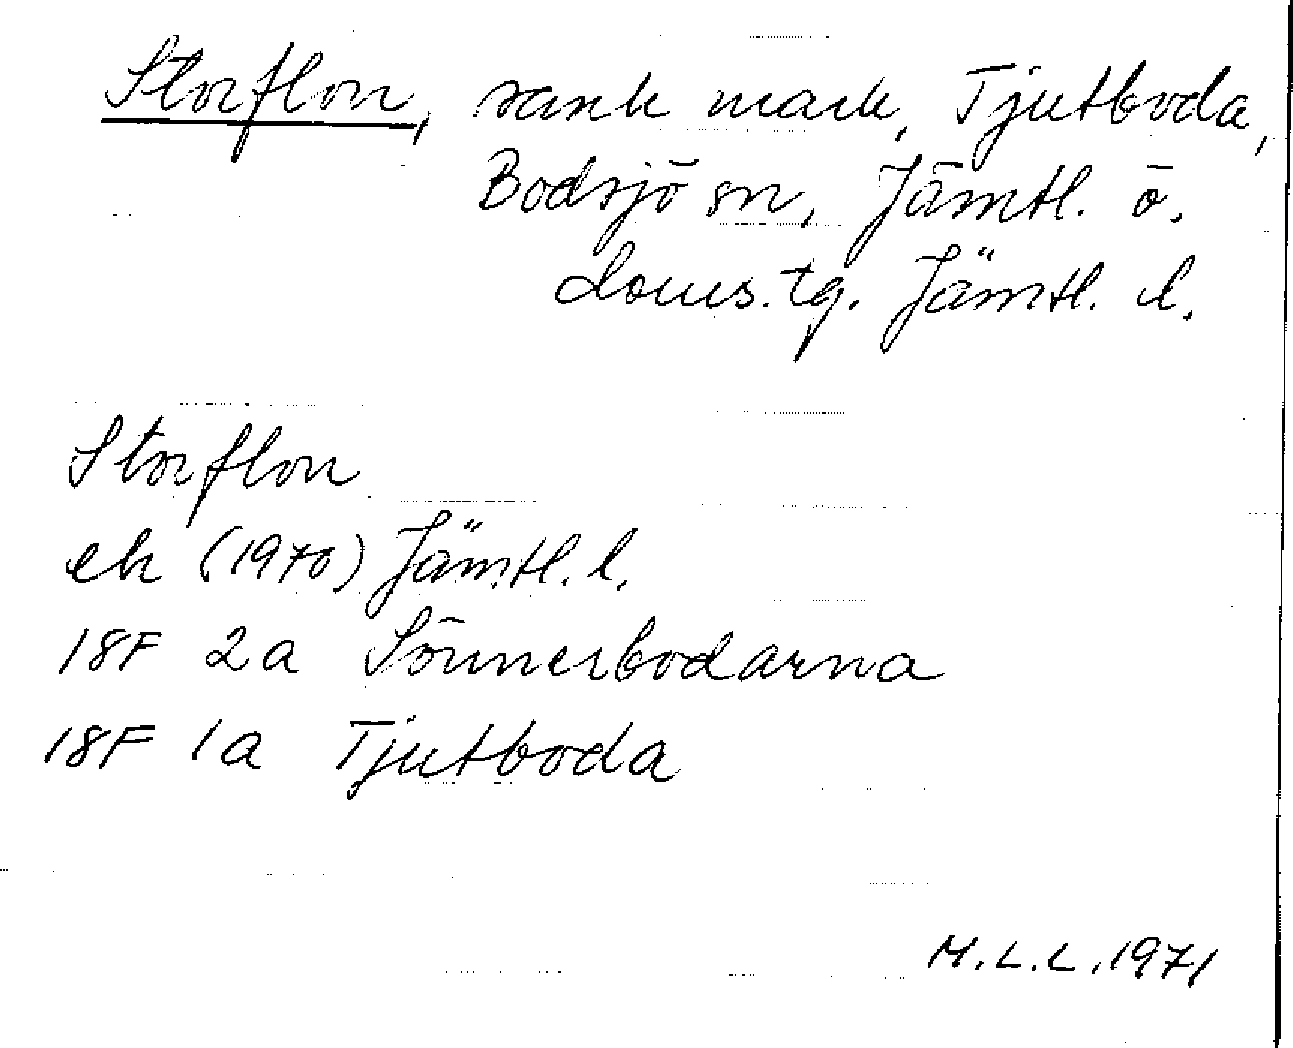 Storflon, sank mark, Tjutboda,
Bodsjö sn, Jämtl. ö.
doms.tg. Jämtl. l.
Storflon
ek (1970) Jämtl. l.
18F 2a Sönnerbodarna
18F 1a Tjutboda
M.L.L. 1971